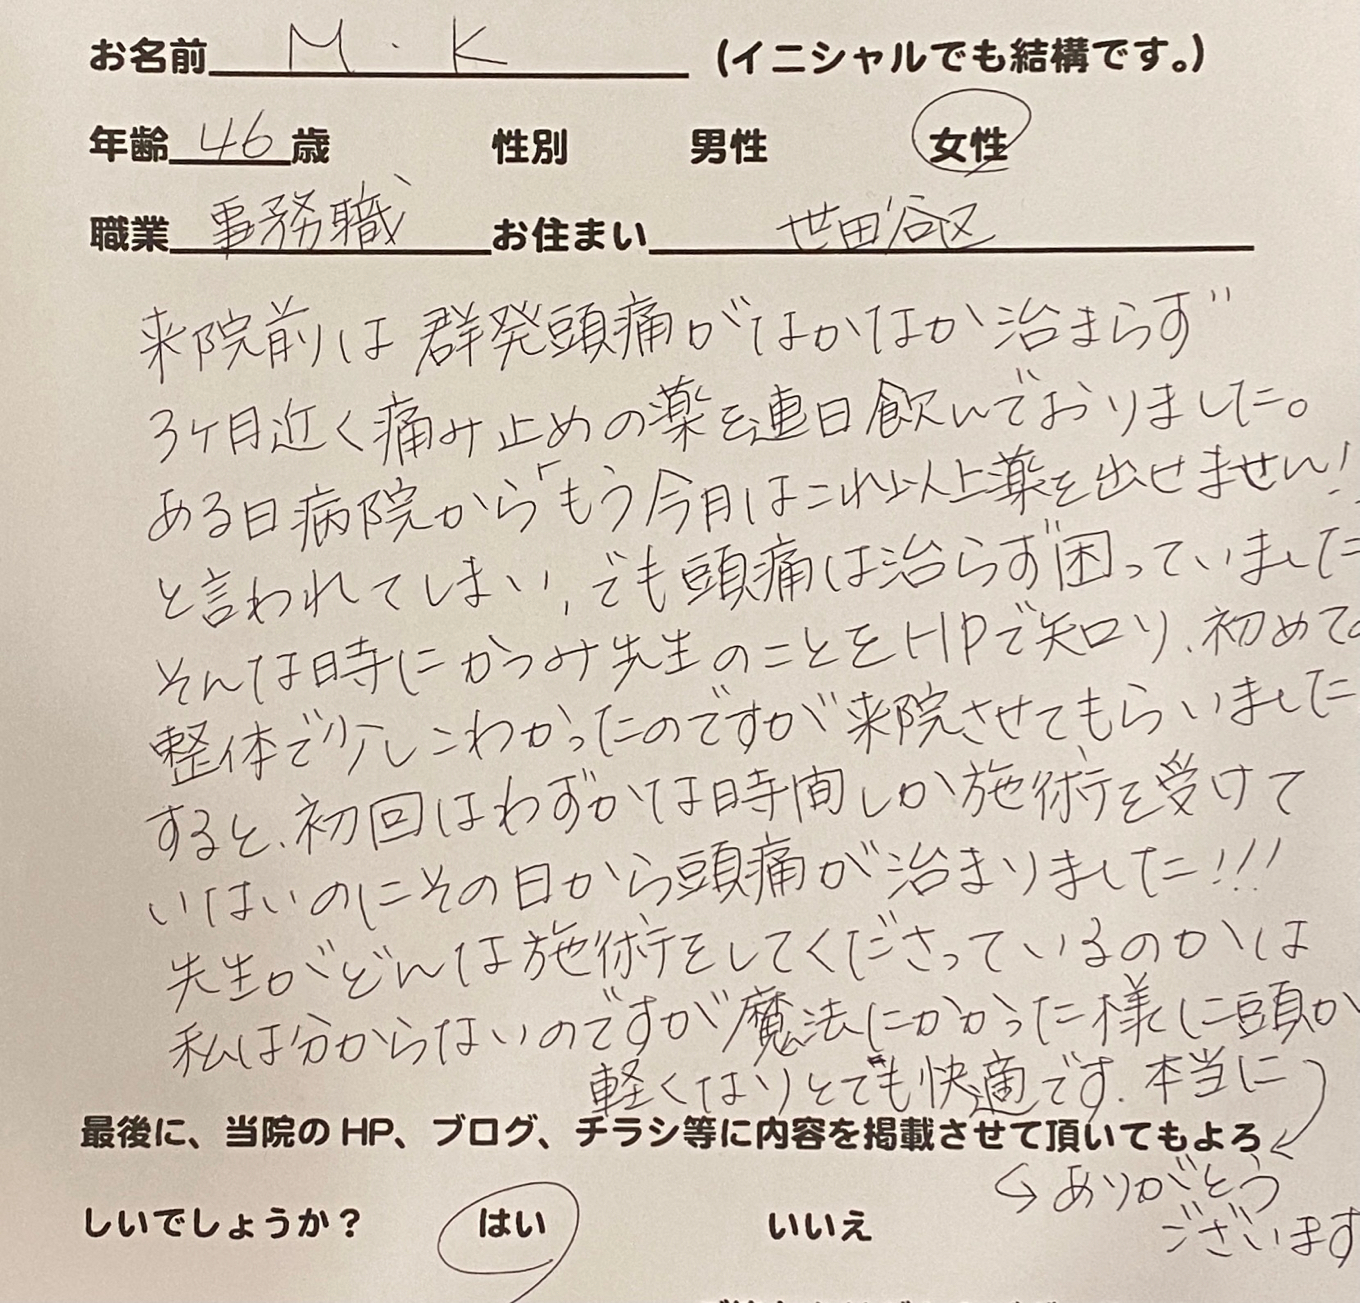 お名前 M・K (イニシャルでも結構です。)
年齢 46 歳 性別 男性 女性
職業 事務職 お住まい 世田谷区
来院前は群発頭痛がなかなか治まらず
3ヶ月近く痛み止めの薬を連日飲んでおりました。
ある日病院から「もう今月はこれ以上薬を出せません!
と言われてしまい、でも頭痛は治らず困っていました
そんな時にかつみ先生のことをHPで知り、初めての
整体で少しこわかったのですが来院させてもらいました
すると、初回はわずかな時間しか施術を受けて
いないのにその日から頭痛が治まりました!!!
先生がどんな施術をしてくださっているのかは
私は分からないのですが魔法にかかった様に頭が
軽くなりとても快適です。本当に
最後に、当院のHP、ブログ、チラシ等に内容を掲載させて頂いてもよろ
ありがとう
しいでしょうか？ はい いいえ
ございます